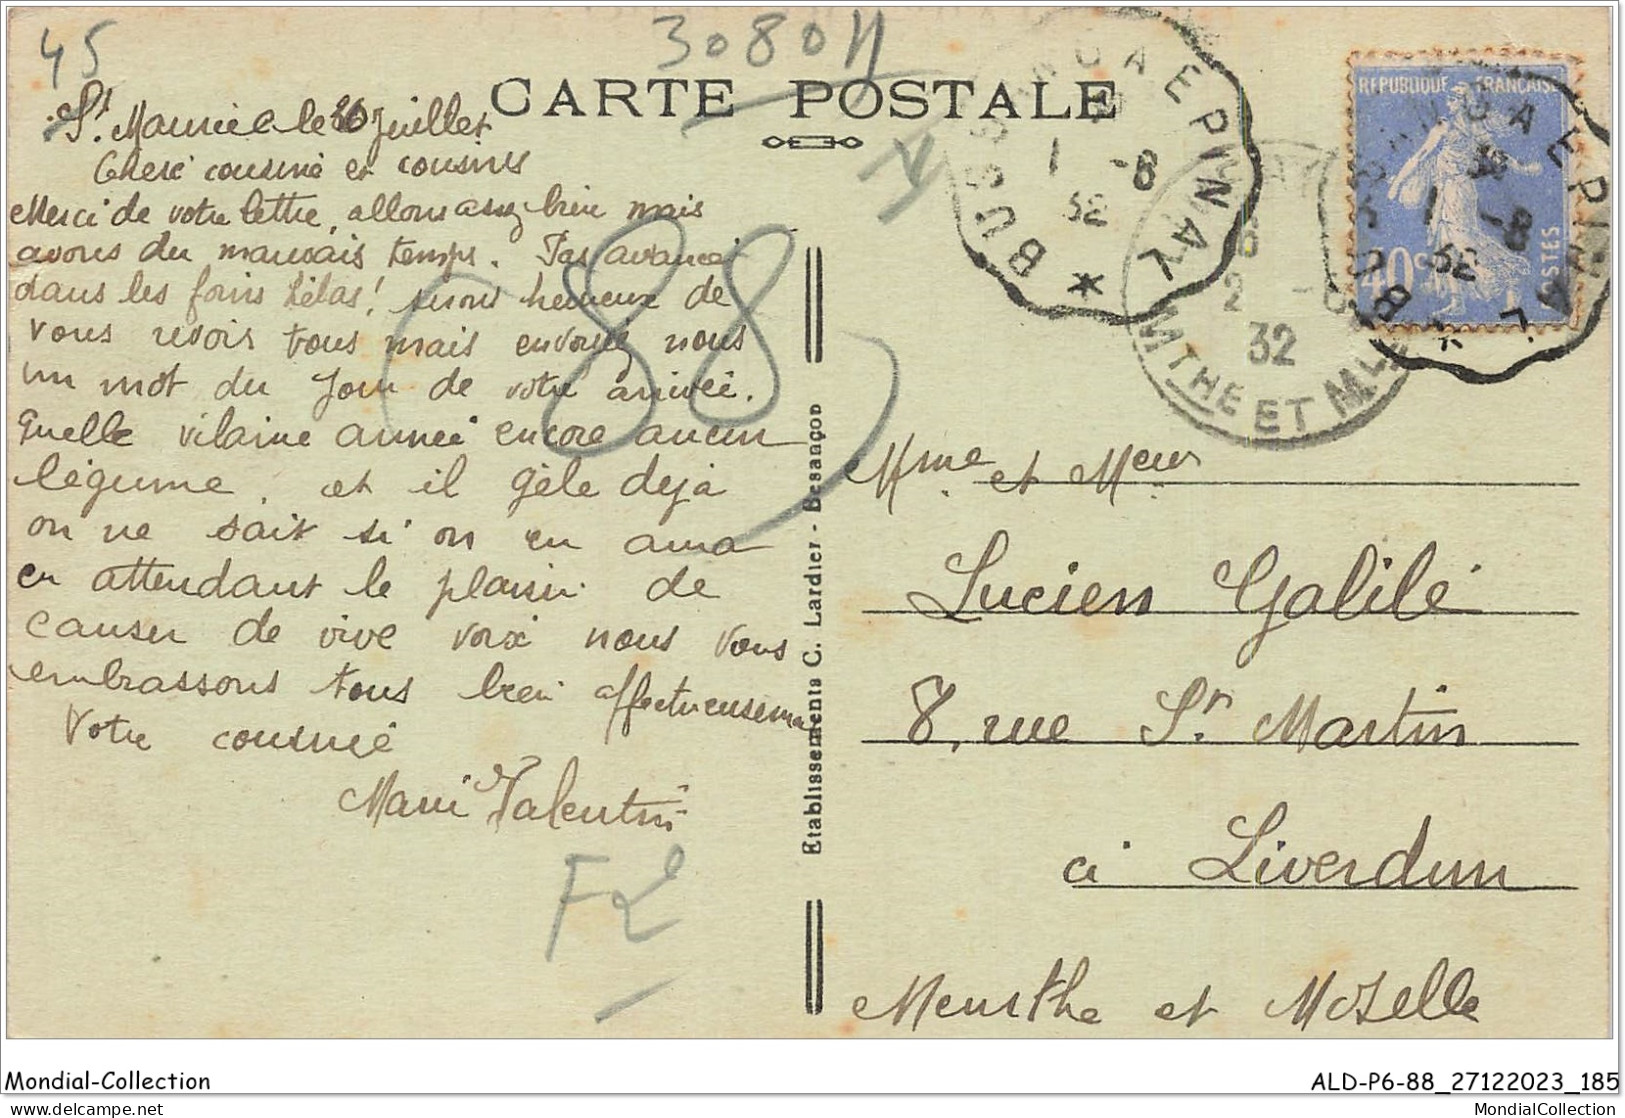 45
3080
CARTE POSTALE
St. Maurice le 30 Juillet
Chere cousine et cousins
Merci de votre lettre, allons assez bien mais
avons du mauvais temps. Pas avancé
dans les foins hélas! serons heureux de
vous revoir tous mais envoyez nous
un mot du jour de votre arrivée.
Quelle vilaine année encore aucun
légume, et il gèle deja
on ne sait si on en aura
en attendant le plaisir de
causer de vive voix nous vous
embrassons tous bien affectueusement
Votre cousine
Marie Valentin
(88)
Etablissements C. Lardier - Besançon
BUSSANG A EPINAL
1 -8
32
REPUBLIQUE FRANÇAISE
40c
POSTES
BUSSANG A EPINAL
1 -8
32
2 -8
32
MTHE ET MLLE
Mme et Meur
Lucien Galilé
8, rue St. Martin
à Liverdun
Meurthe et Moselle
Mondial-Collection
ALD-P6-88_27122023_185
text
MondialCollection.com